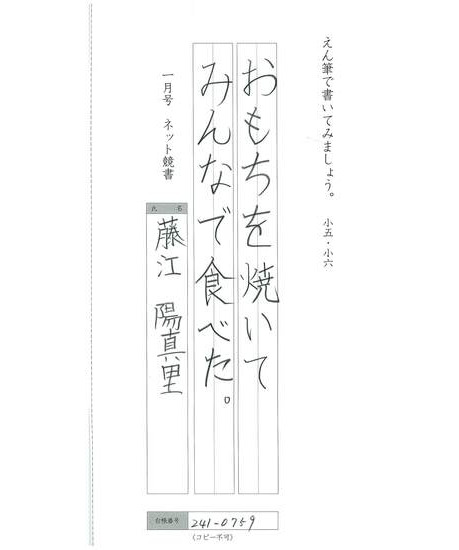 えん筆で書いてみましょう。 小五・小六
おもちを焼いて
みんなで食べた。
一月号 ネット競書
氏名
藤江 陽真里
台帳番号 241-0759
(コピー不可)